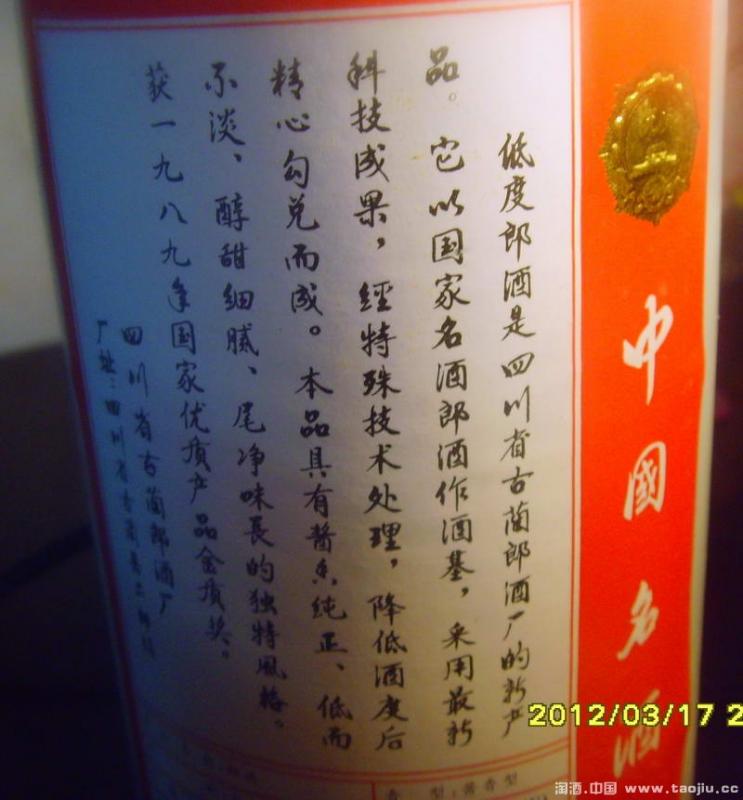 中國名酒
低度郎酒是四川省古蔺郎酒厂的新产
品。它以国家名酒郎酒作酒基，采用最新
科技成果，经特殊技术处理，降低酒度后
精心勾兑而成。本品具有酱香纯正、低而
不淡、醇甜细腻、尾净味長的独特風格。
获一九八九年国家优质产品金质奖。
四川省古蔺郎酒厂
厂址：四川省古蔺县二郎
型：酱香型
2012/03/17 2
淘酒.中国 www.taojiu.cc